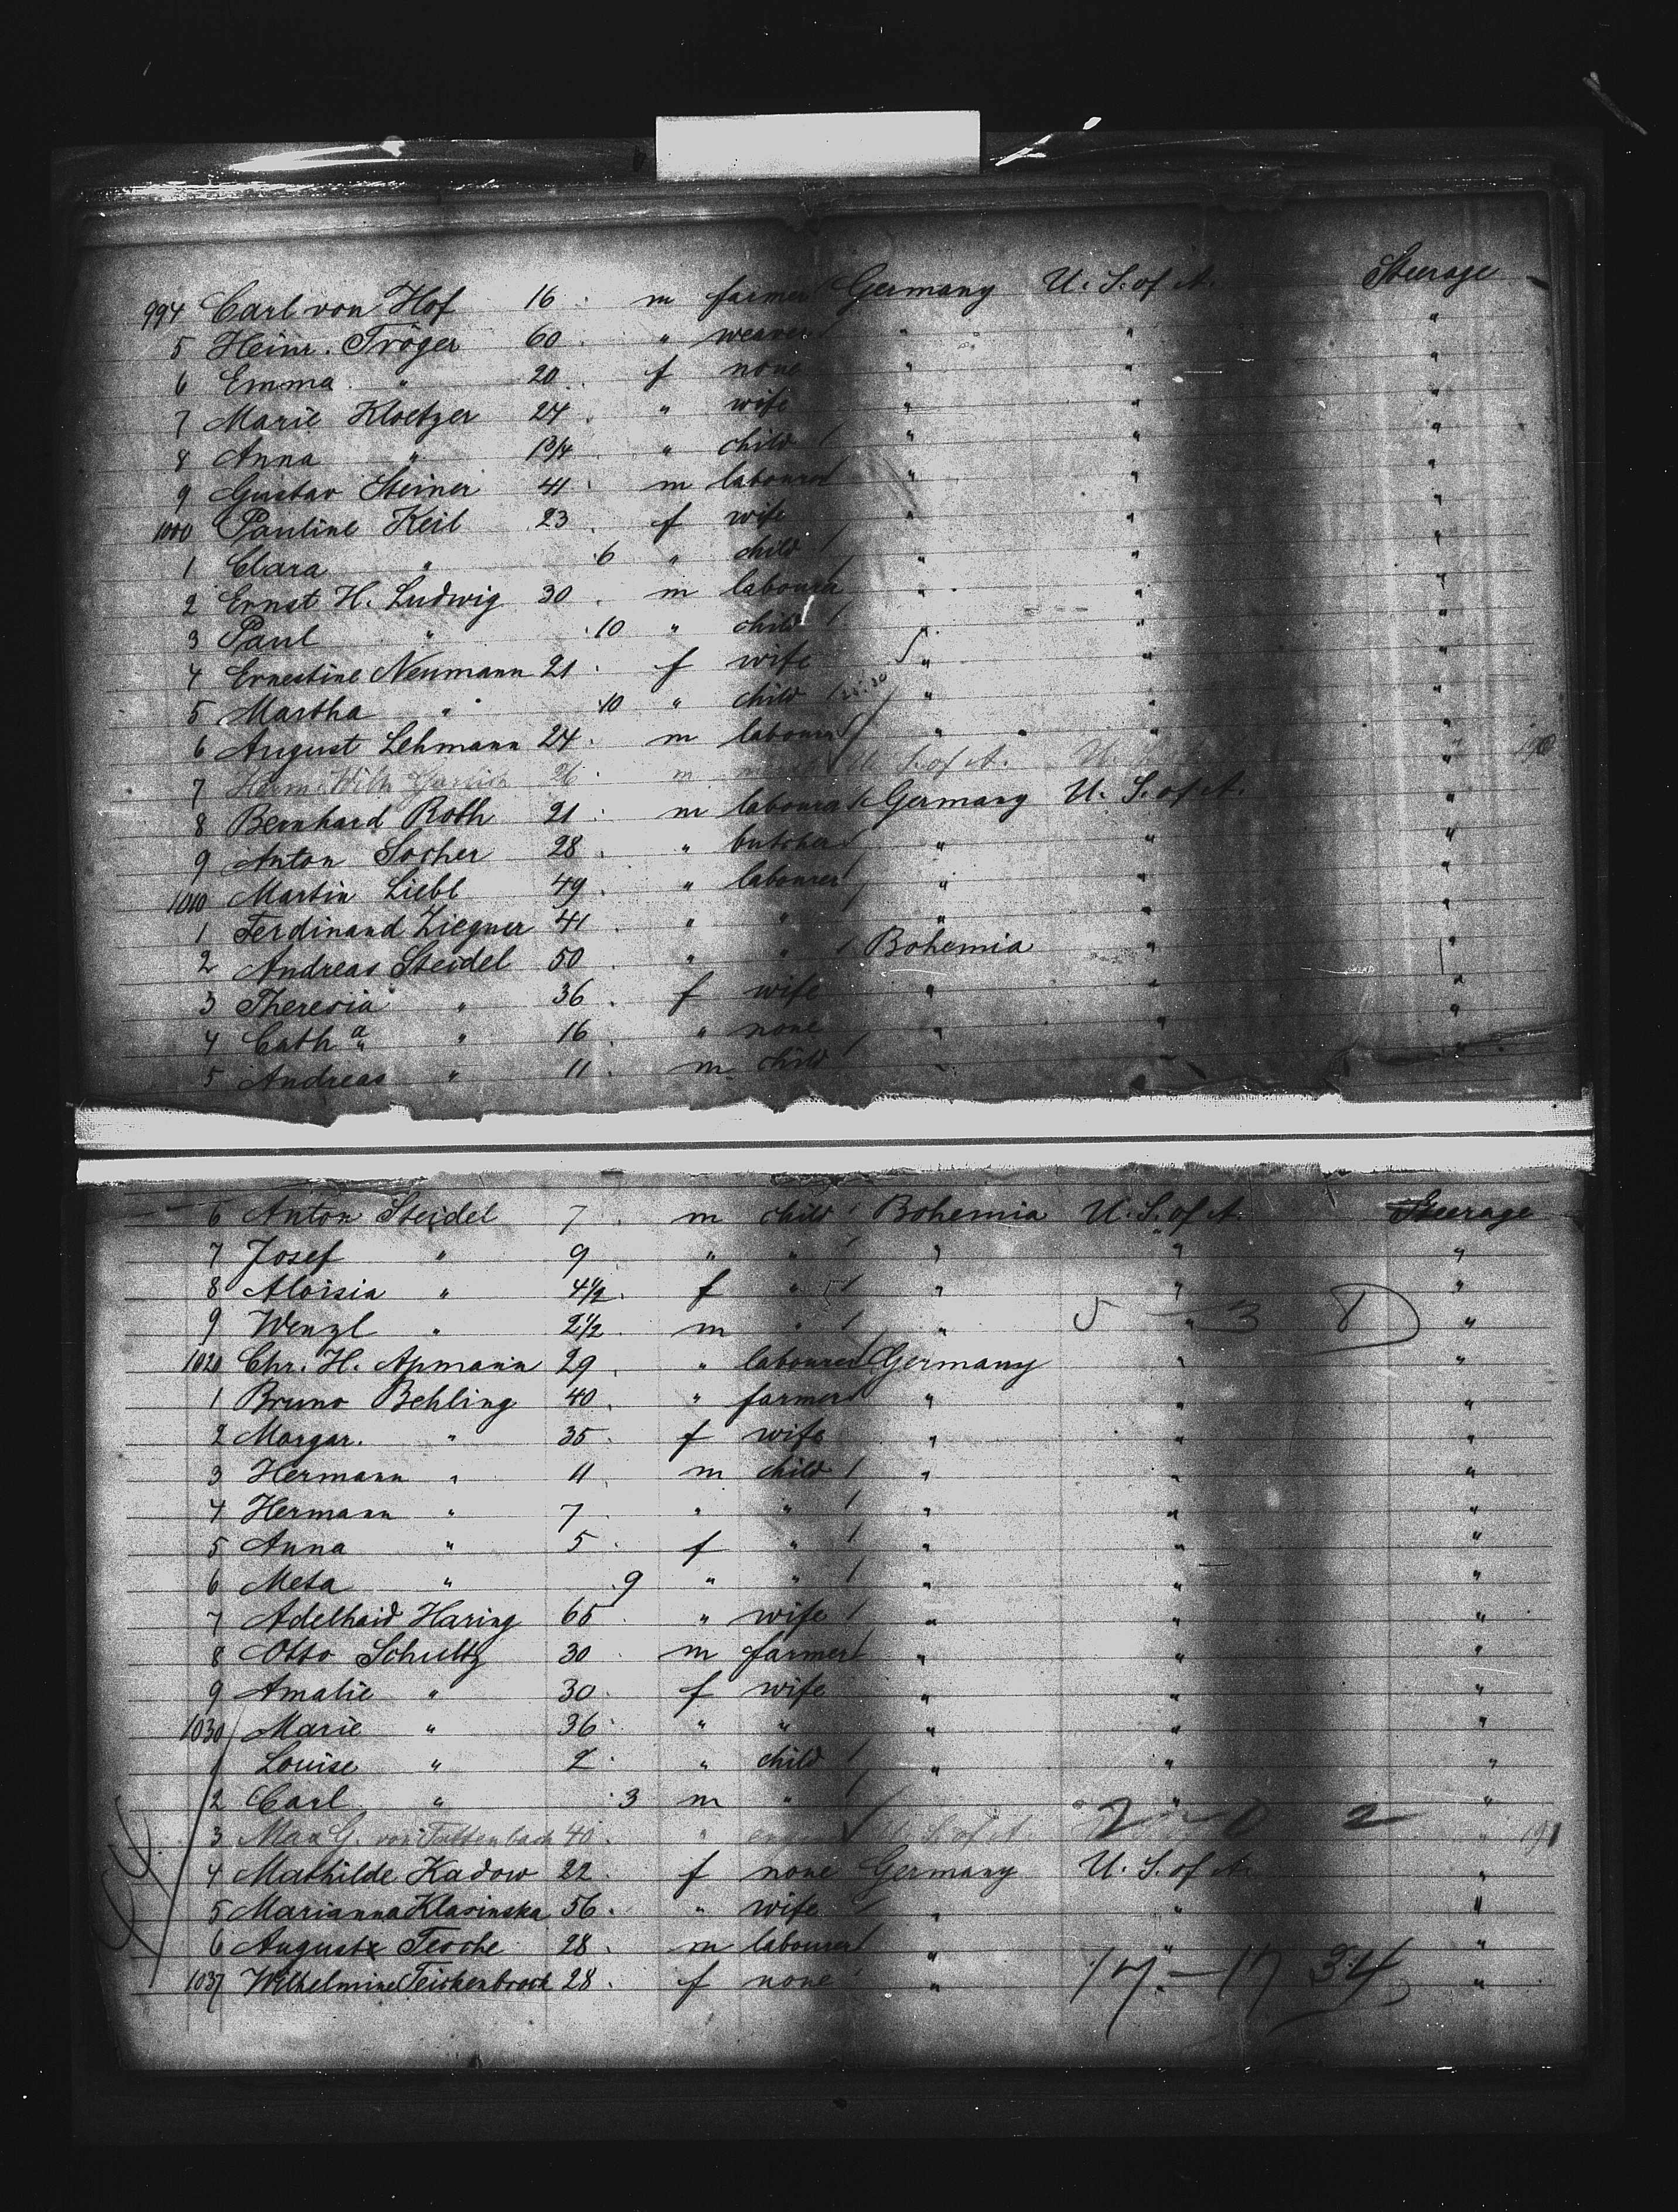 994 Carl von Hof 16 m farmer Germany U. S. of A. Steerage
5 Heinr. Tröger 60 " weaver " " "
6 Emma " 20 f none " " "
7 Marie Kloetzer 24 " wife " " "
8 Anna " 1 3/4 " child " " "
9 Gustav Steiner 41 m labourer " " "
1000 Pauline Keil 23 f wife " " "
1 Clara " 6 " child " " "
2 Ernst H. Ludwig 30 m labourer " " "
3 Paul " 10 " child " " "
4 Ernestine Neumann 21 f wife " " "
5 Martha " 10 " child " " "
6 August Lehmann 24 m labourer " " "
7 Herm. Wilh. 26 m U. S. of A. U. S. " 190
8 Bernhard Roth 21 m labourer Germany U. S. of A. "
9 Anton Socher 28 " butcher " " "
1010 Martin Liebl 49 " labourer " " "
1 Ferdinand Ziegner 41 " " " " "
2 Andreas Steidel 50 " " Bohemia " "
3 Theresia " 36 f wife " " "
4 Cath a " 16 " none " " "
5 Andreas " 11 m child " " "
6 Anton Steidel 7 m child Bohemia U. S. of A. Steerage
7 Josef " 9 " " " " "
8 Aloisia " 4 1/2 f " " " "
9 Wenzl " 2 1/2 m " " " 5 - 3 8 "
1020 Chr. H. Apmann 29 " labourer Germany " "
1 Bruno Behling 40 " farmer " " "
2 Margar. " 35 f wife " " "
3 Hermann " 11 m child " " "
4 Hermann " 7 " " " " "
5 Anna " 5 f " " " "
6 Meta " 9 " " " " "
7 Adelhaid Haring 65 " wife " " "
8 Otto Schultz 30 m farmer " " "
9 Amalie " 30 f wife " " "
1030 Marie " 36 " " " " "
1 Louise " 2 " child " " "
2 Carl " 3 m " " " "
3 Max G. von Tattenbach 40 " U. S. of A. 2 - 0 2 " 191
4 Mathilde Kadow 22 f none Germany U. S. of A. "
5 Marianna Klasinska 56 " wife " " "
6 August Tesche 28 m labourer " " "
1037 Wilhelmine Teichenbrock 28 f none " 17 - 17 34 "